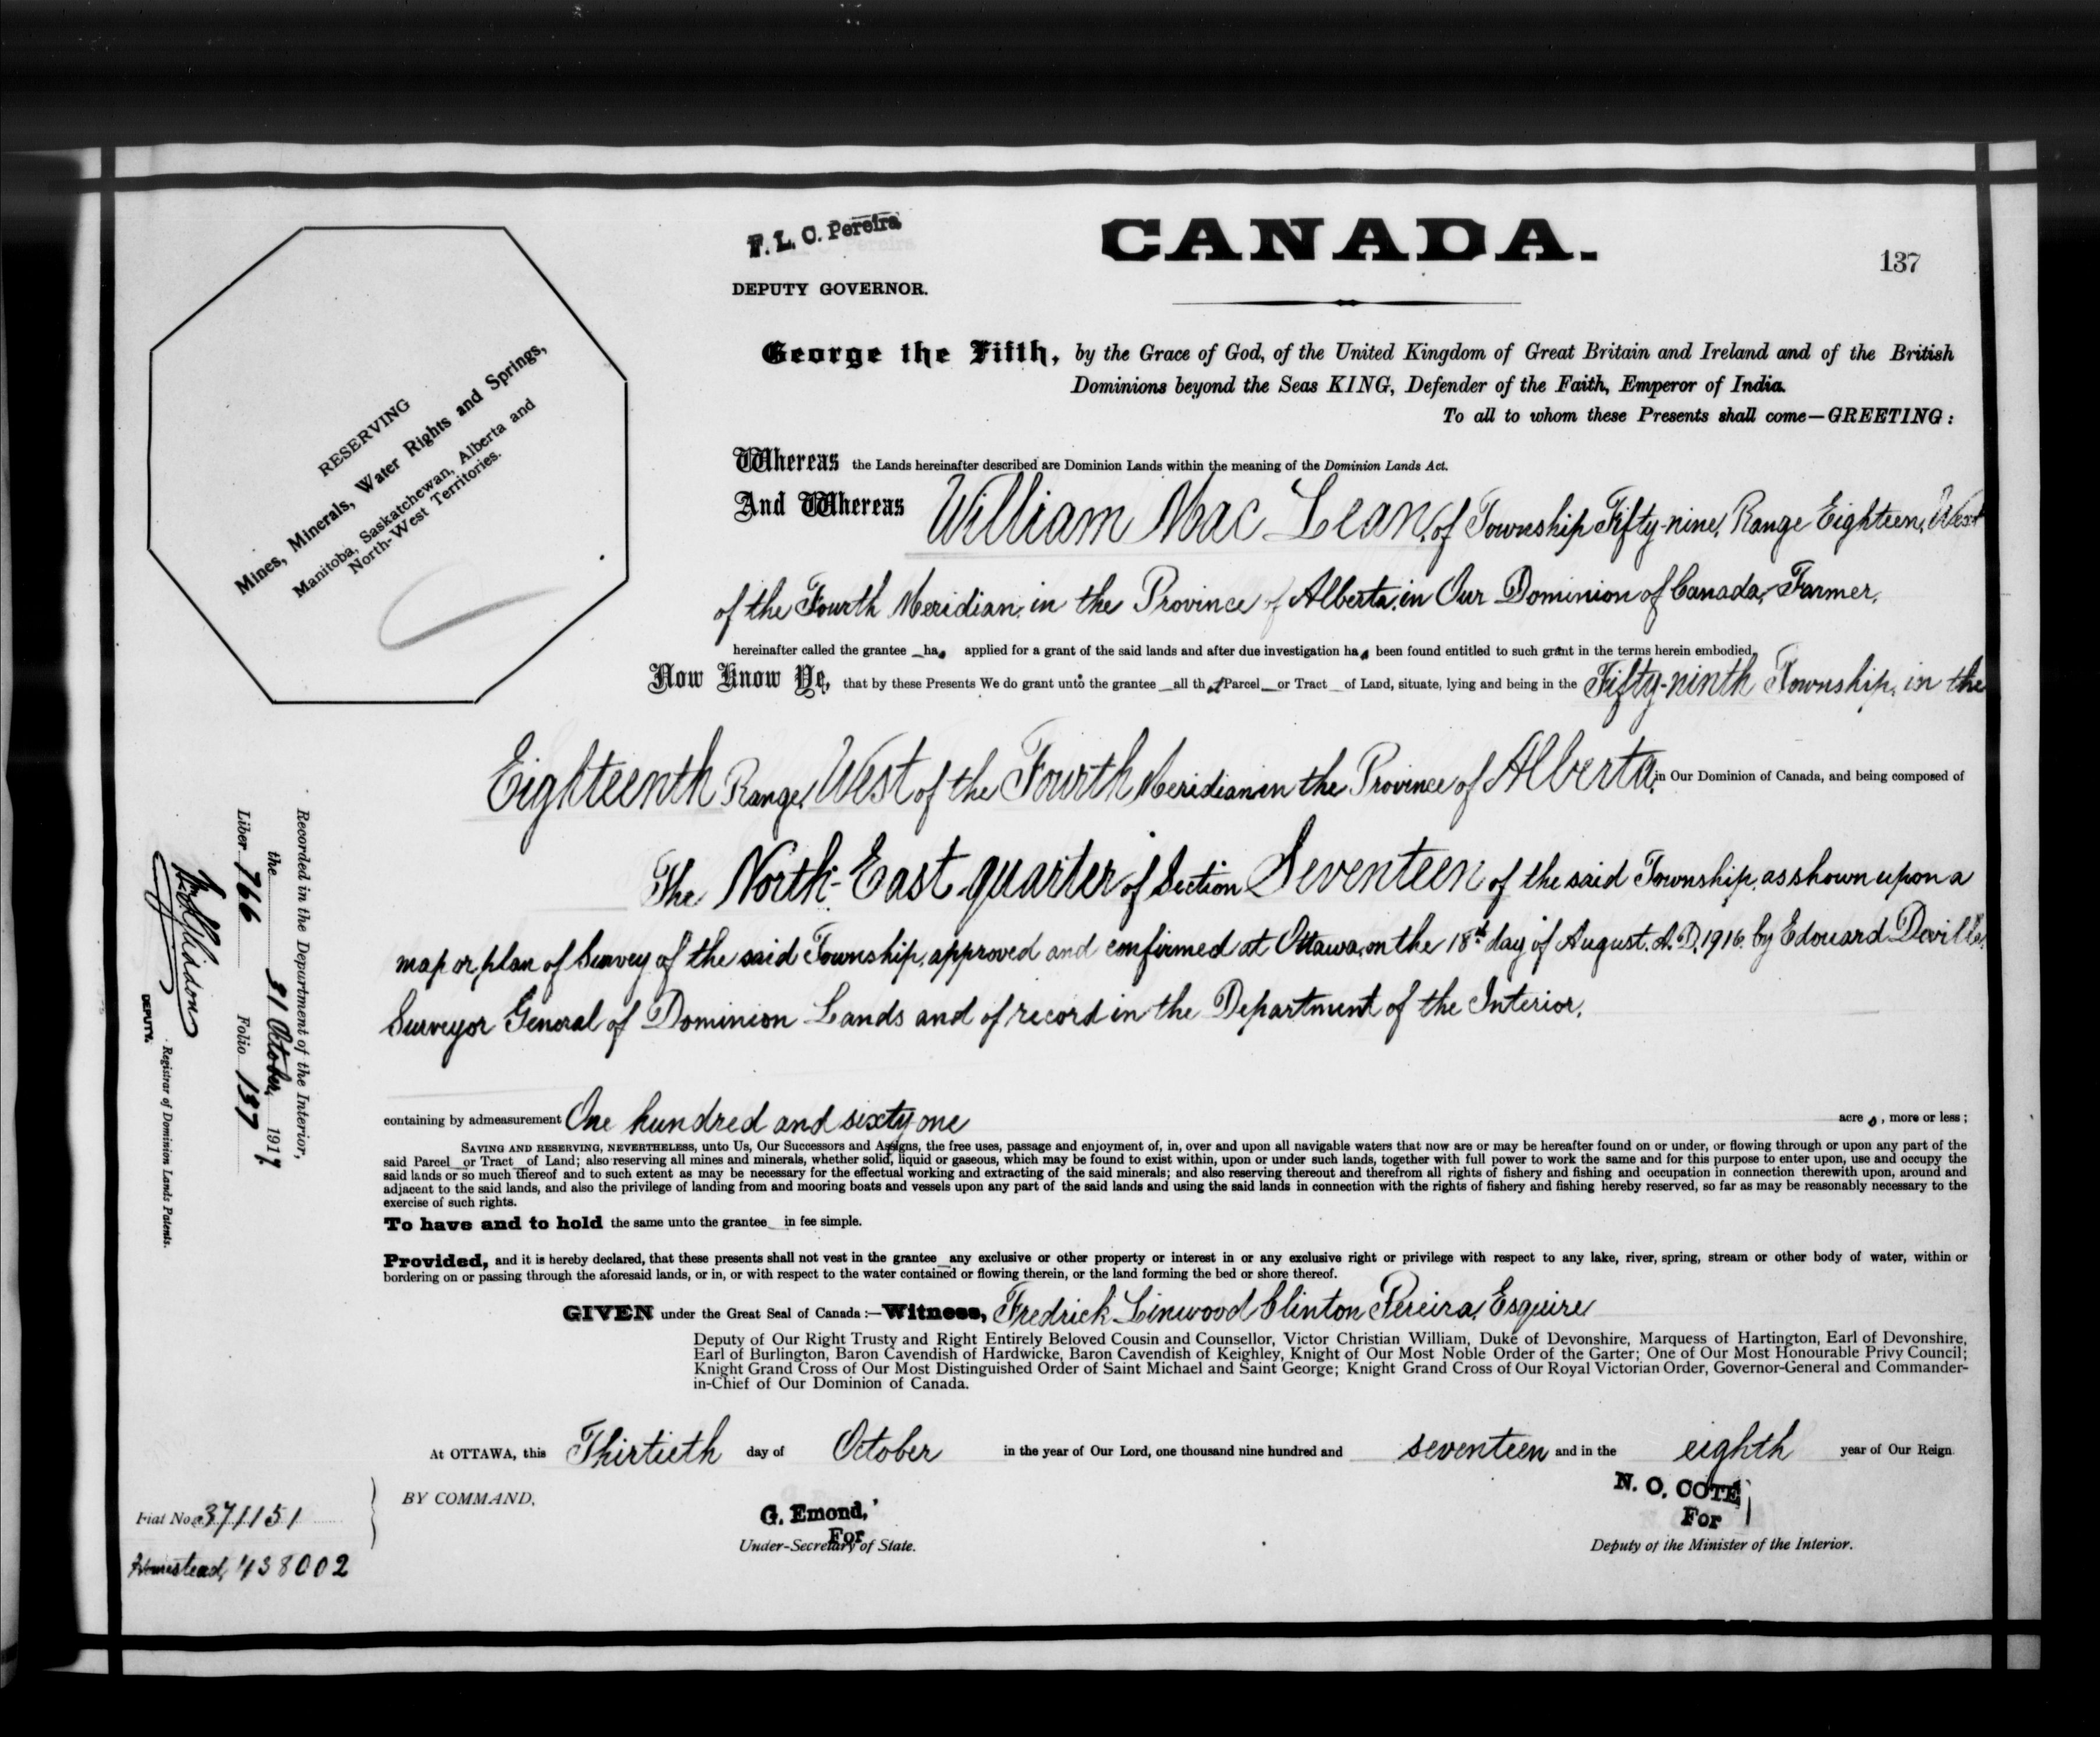 F. L. C. Pereira
DEPUTY GOVERNOR.
CANADA.
137
RESERVING
Mines, Minerals, Water Rights and Springs,
Manitoba, Saskatchewan, Alberta and
North-West Territories.
George the Fifth, by the Grace of God, of the United Kingdom of Great Britain and Ireland and of the British
Dominions beyond the Seas KING, Defender of the Faith, Emperor of India.
To all to whom these Presents shall come—GREETING:
Whereas the Lands hereinafter described are Dominion Lands within the meaning of the Dominion Lands Act.
And Whereas William Mac Lean, of Township Fifty-nine, Range Eighteen, West
of the Fourth Meridian, in the Province of Alberta, in Our Dominion of Canada, Farmer,
hereinafter called the grantee has applied for a grant of the said lands and after due investigation has been found entitled to such grant in the terms herein embodied,
Now Know Ye, that by these Presents We do grant unto the grantee all that Parcel or Tract of Land, situate, lying and being in the Fifty-ninth Township, in the
Eighteenth Range, West of the Fourth Meridian in the Province of Alberta, in Our Dominion of Canada, and being composed of
The North-East quarter of Section Seventeen of the said Township, as shown upon a
map or plan of Survey of the said Township, approved and confirmed at Ottawa, on the 18th day of August, A.D. 1916, by Edouard Deville,
Surveyor General of Dominion Lands and of record in the Department of the Interior,
containing by admeasurement One hundred and sixty one acres, more or less;
SAVING AND RESERVING, NEVERTHELESS, unto Us, Our Successors and Assigns, the free uses, passage and enjoyment of, in, over and upon all navigable waters that now are or may be hereafter found on or under, or flowing through or upon any part of the
said Parcel or Tract of Land; also reserving all mines and minerals, whether solid, liquid or gaseous, which may be found to exist within, upon or under such lands, together with full power to work the same and for this purpose to enter upon, use and occupy the
said lands or so much thereof and to such extent as may be necessary for the effectual working and extracting of the said minerals; and also reserving thereout and therefrom all rights of fishery and fishing and occupation in connection therewith upon, around and
adjacent to the said lands, and also the privilege of landing from and mooring boats and vessels upon any part of the said lands and using the said lands in connection with the rights of fishery and fishing hereby reserved, so far as may be reasonably necessary to the
exercise of such rights.
To have and to hold the same unto the grantee in fee simple.
Provided, and it is hereby declared, that these presents shall not vest in the grantee any exclusive or other property or interest in or any exclusive right or privilege with respect to any lake, river, spring, stream or other body of water, within or
bordering on or passing through the aforesaid lands, or in, or with respect to the water contained or flowing therein, or the land forming the bed or shore thereof.
GIVEN under the Great Seal of Canada:—Witness, Fredrick Linwood Clinton Pereira, Esquire
Deputy of Our Right Trusty and Right Entirely Beloved Cousin and Counsellor, Victor Christian William, Duke of Devonshire, Marquess of Hartington, Earl of Devonshire,
Earl of Burlington, Baron Cavendish of Hardwicke, Baron Cavendish of Keighley, Knight of Our Most Noble Order of the Garter; One of Our Most Honourable Privy Council;
Knight Grand Cross of Our Most Distinguished Order of Saint Michael and Saint George; Knight Grand Cross of Our Royal Victorian Order, Governor-General and Commander-
in-Chief of Our Dominion of Canada.
At OTTAWA, this Thirtieth day of October in the year of Our Lord, one thousand nine hundred and seventeen and in the eighth year of Our Reign
BY COMMAND,
G. Emond,
For
Under-Secretary of State.
N. O. COTE
For
Deputy of the Minister of the Interior.
Fiat No. 371151
Homestead, 438002
Recorded in the Department of the Interior,
the 31 October, 1917
Liber 766 Folio 137
DEPUTY.
Registrar of Dominion Lands Patents.